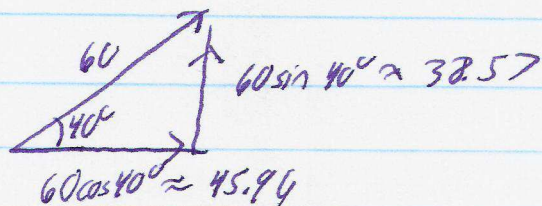 60
60sin 40° ≈ 38.57
40°
60cos40° ≈ 45.96